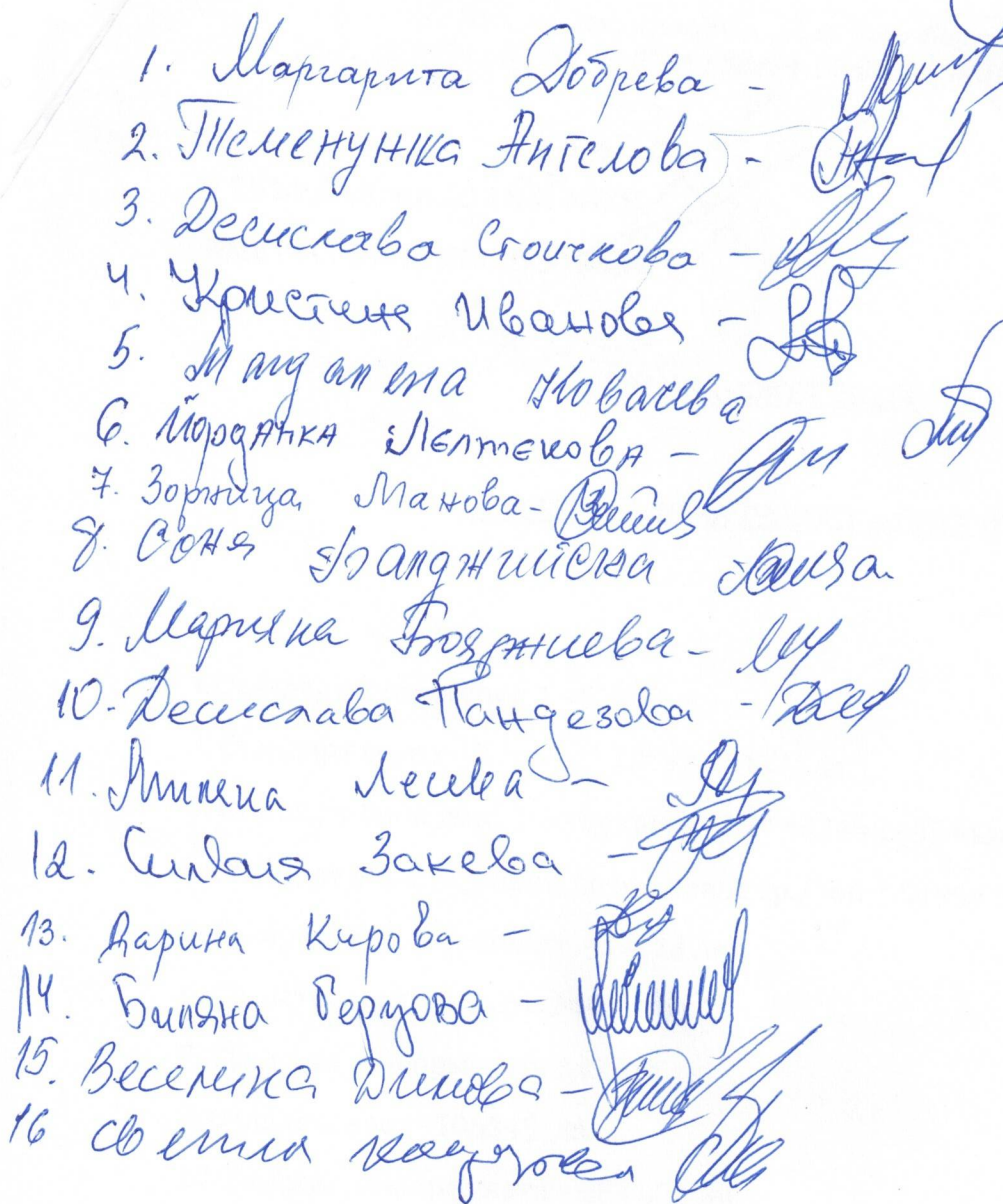 1. Маргарита Добрева -
2. Теменужка Ангелова -
3. Десислава Стоичкова -
4. Кристина Иванова -
5. Магдалена Ковачева
6. Йорданка Лелтекова -
7. Зорница Манова -
8. Соня Балджийска
9. Марияна Бояджиева -
10. Десислава Пандезова -
11. Милена Лешева -
12. Силвия Закева -
13. Дарина Кирова -
14. Биляна Герузова -
15. Веселина Динова -
16 Светла